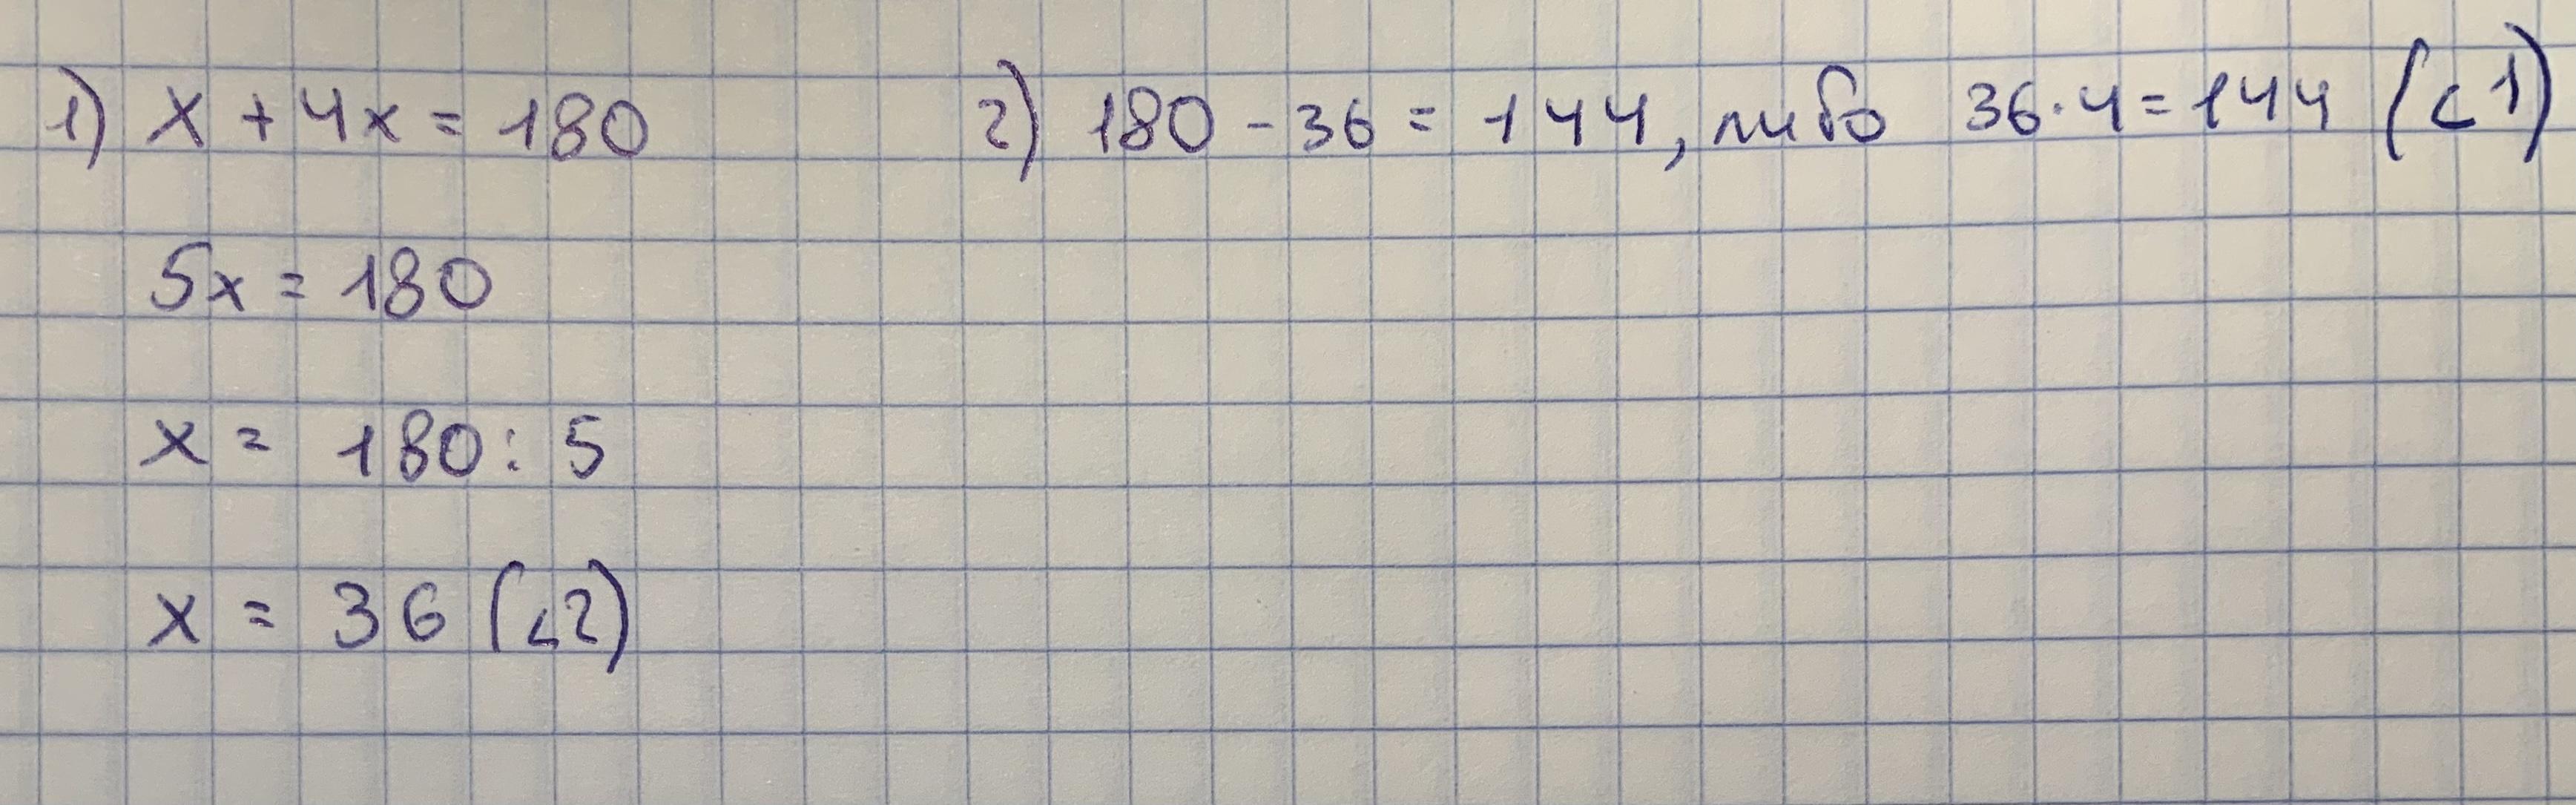 1) x + 4x = 180
2) 180 - 36 = 144, либо 36·4 = 144 (∠1)
5x = 180
x = 180 : 5
x = 36 (∠2)